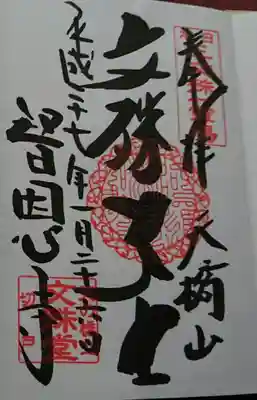 奉拝 天橋山
文殊大士
平成二十七年一月二十六日
智恩寺
文殊堂
切戸